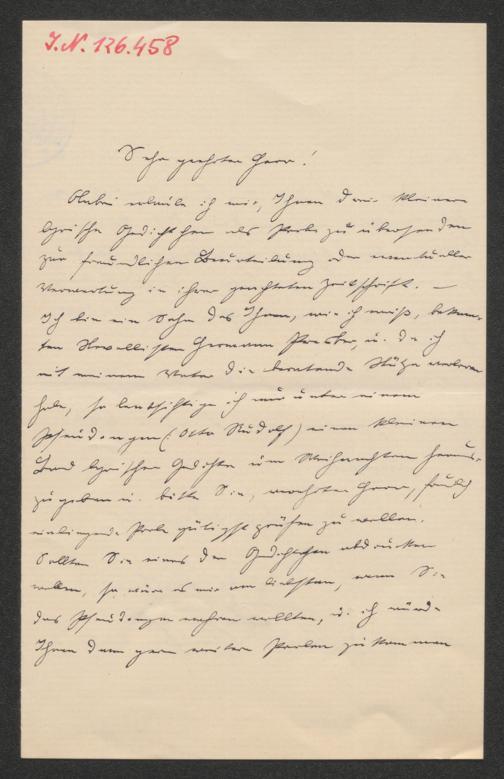 J.N. 126.458
Sehr geehrter Herr!
Anbei erlaube ich mir, Ihnen drei kleinere
lyrische Gedichtchen als Probe zu übersenden
zur freundlichen Beurteilung oder eventueller
Verwertung in ihrer geachteten Zeitschrift. —
Ich bin ein Sohn des Ihnen, wie ich weiß, bekann-
ten Novellisten Hermann u. da ich
mit meinem Vater die beratende Stütze verloren
habe, so beabsichtige ich nun unter einem
Pseudonym (Otto Rudolf) einen kleinen
Band lyrischer Gedichte um Weihnachten heraus-
zugeben u. bitte Sie, geehrter Herr, freundlich
einliegende Probe gütigst prüfen zu wollen.
Sollten Sie eines der Gedichtchen abdrucken
wollen, so wäre es mir am liebsten, wenn Sie
das Pseudonym wahren wollten, u. ich würde
Ihnen dann gern weitere Proben zukommen